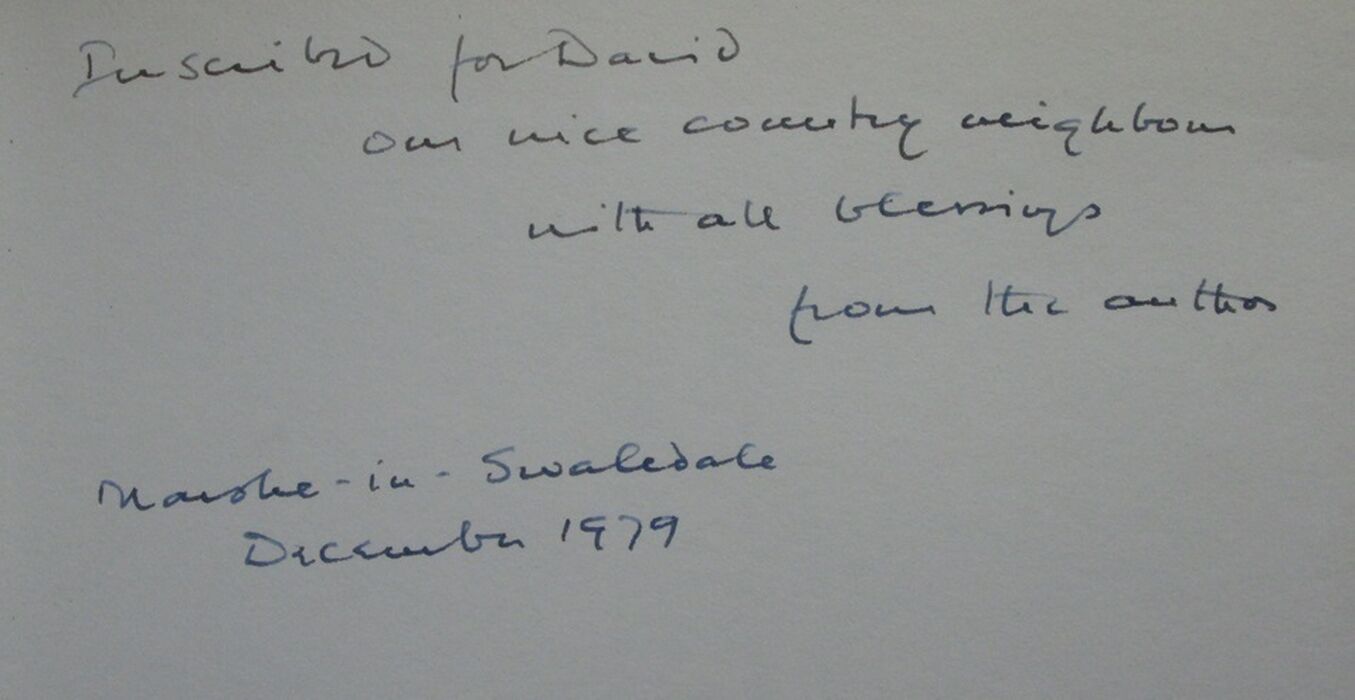 Inscribed for David
our nice country neighbour
with all blessings
from the author
Marske-in-Swaledale
December 1979